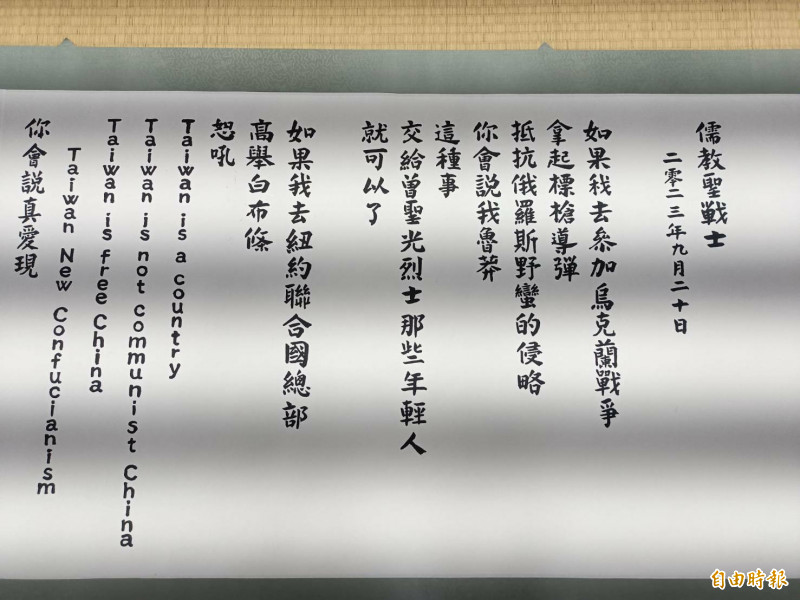 儒教聖戰士
二零二三年九月二十日
如果我去參加烏克蘭戰爭
拿起標槍導彈
抵抗俄羅斯野蠻的侵略
你會說我魯莽
這種事
交給曾聖光烈士那些年輕人
就可以了
如果我去紐約聯合國總部
高舉白布條
怒吼
Taiwan is a country
Taiwan is not communist China
Taiwan is free China
Taiwan New Confucianism
你會說真愛現
自由時報